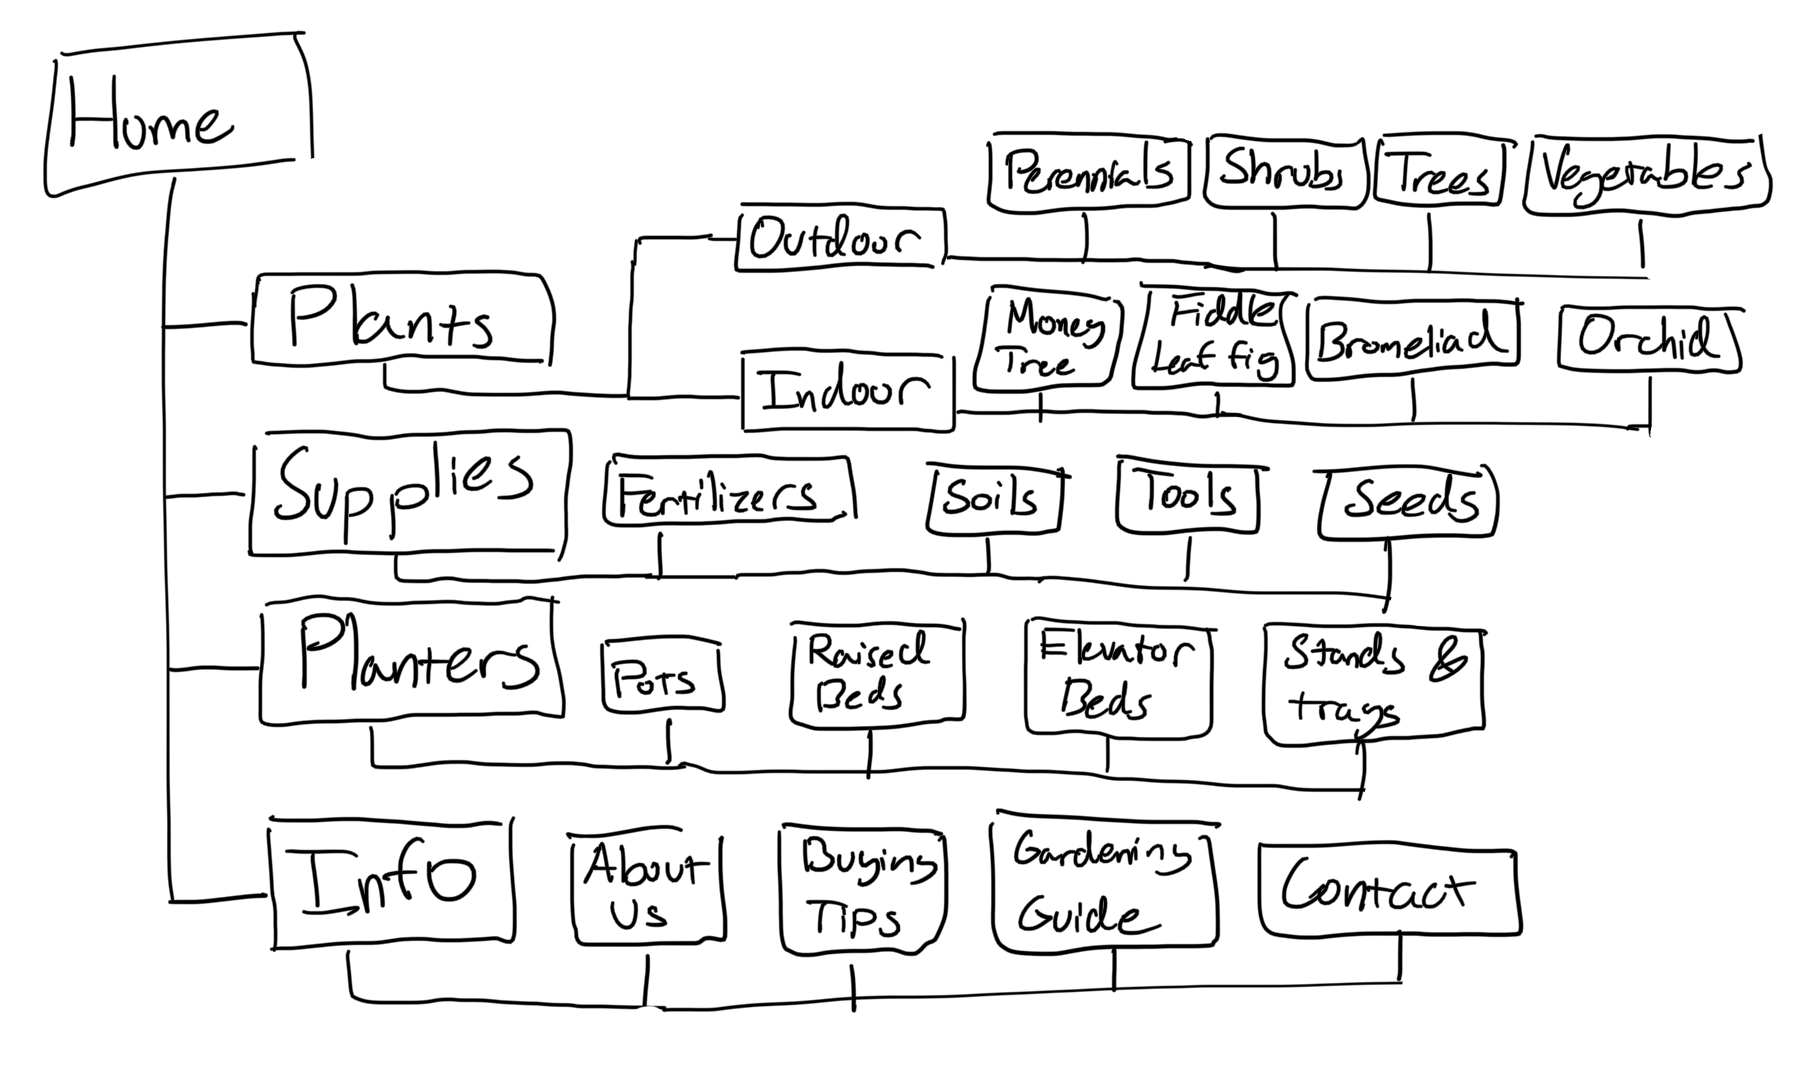 Home
Perennials Shrubs Trees Vegetables
Outdoor
Plants
Money
Tree
Fiddle
Leaf fig
Bromeliad
Orchid
Indoor
Supplies
Fertilizers
Soils
Tools
Seeds
Planters
Pots
Raised
Beds
Elevator
Beds
Stands &
trays
Info
About
Us
Buying
Tips
Gardening
Guide
Contact